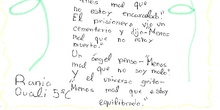 menos mal que
no estoy encarcelado."
El prisionero vio un
cementerio y dijo-Menos
mal que no estoy
muerto."
Un ángel pensó-Menos
mal que no soy malo."
Y el universo gritó-
Menos mal que estoy
equilibrado."
Rania
Ouali 5ºC